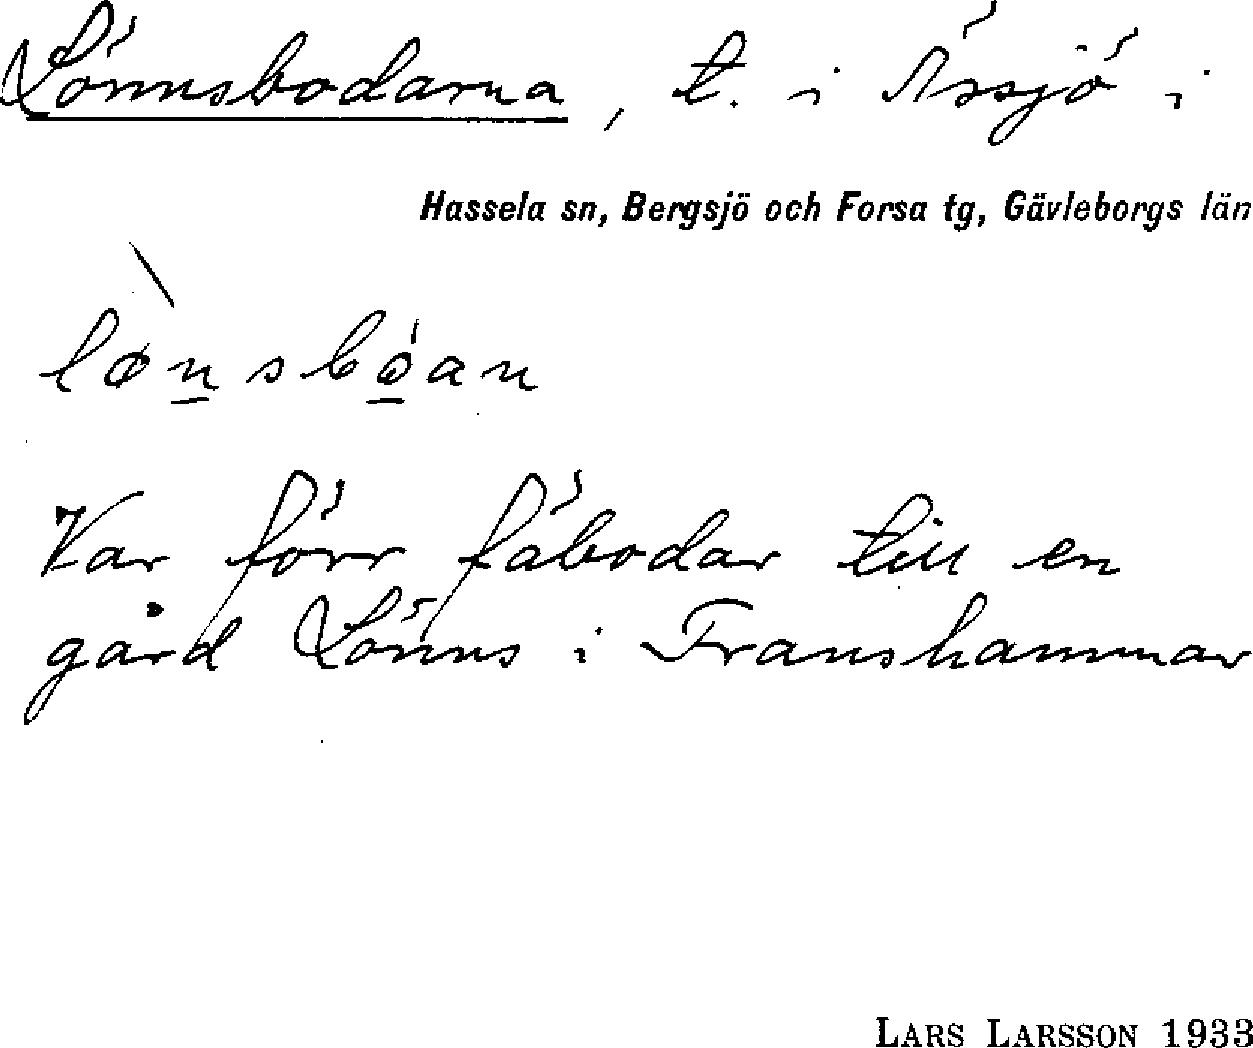 Lönnsbodarna, t. i Ärsjö i
Hassela sn, Bergsjö och Forsa tg, Gävleborgs län
lø̀n̲sbǿ̲an
Var förr fäbodar till en
gård Lönns i Franshammar
LARS LARSSON 1933